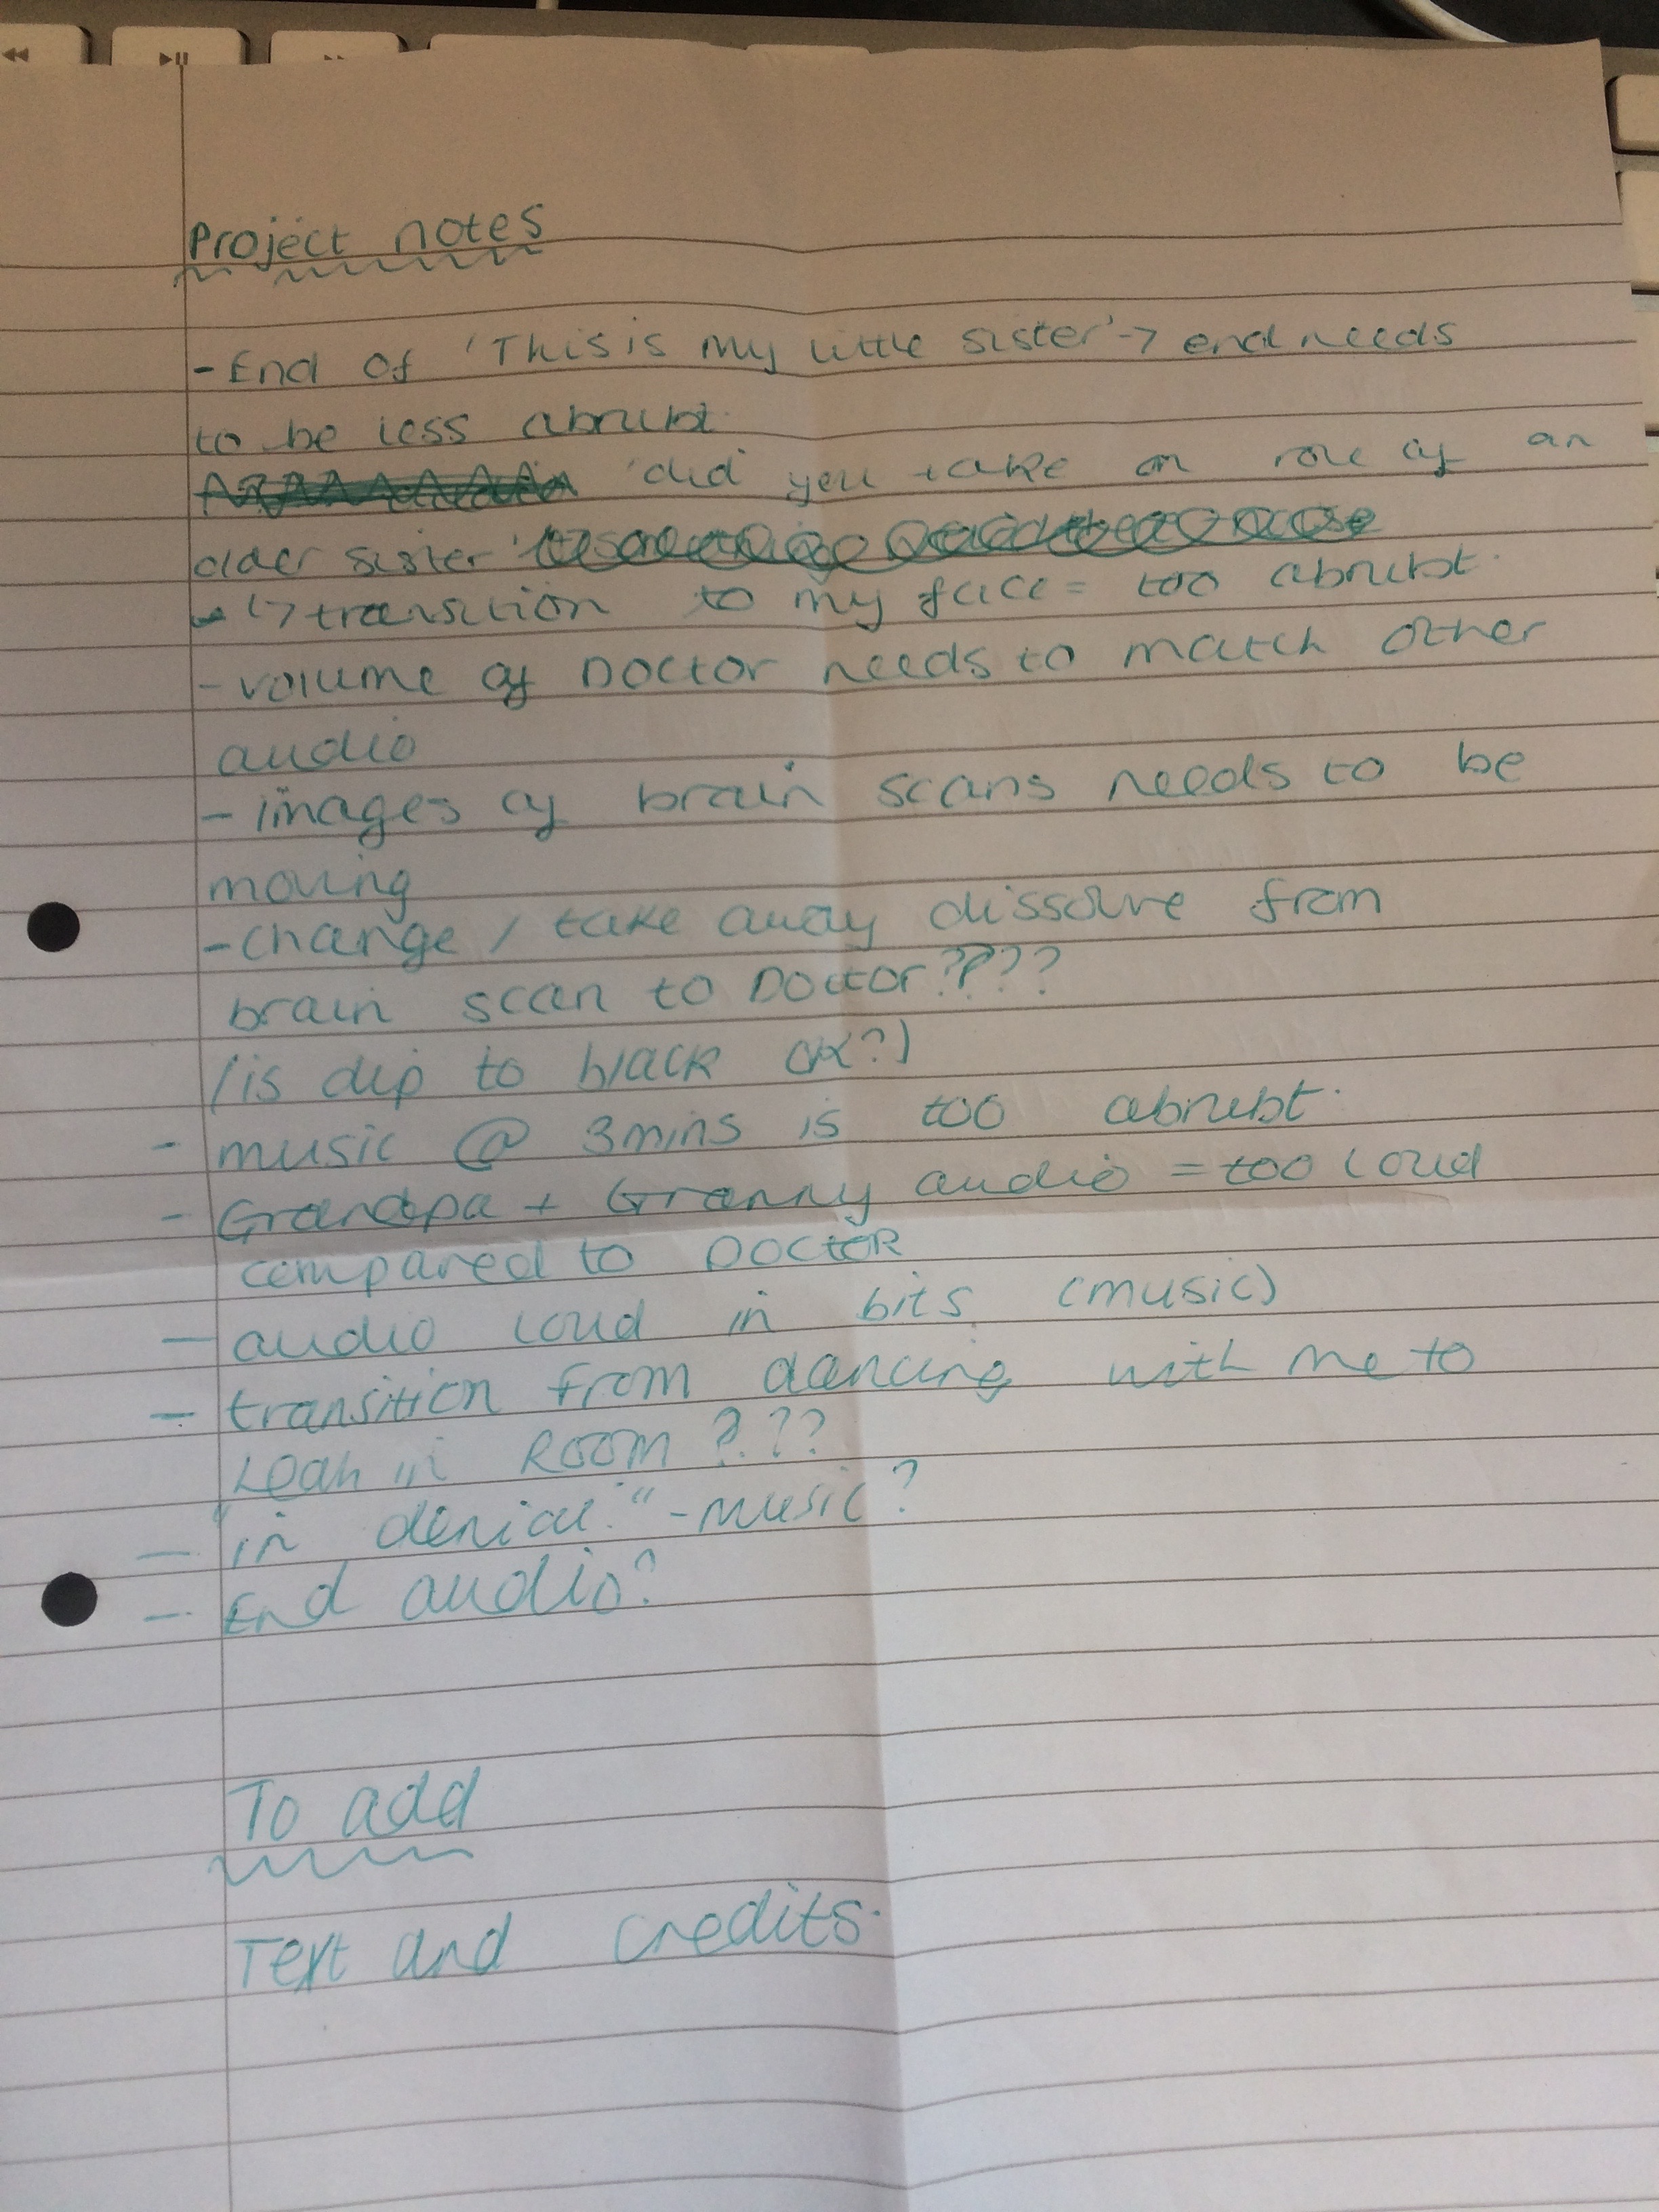 Project notes
- End of 'This is my little sister' -> end needs
to be less abrubt.
'did you take on role of an
older sister'
↳ transition to my face = too abrubt.
- volume of Doctor needs to match other
audio
- images of brain scans needs to be
moving
- change / take away dissolve from
brain scan to Doctor????
(is dip to black OK?)
- music @ 3mins is too abrubt.
- Grandpa + Granny audio = too loud
compared to DOCTOR
- audio loud in bits (music)
- transition from dancing with me to
Leah in ROOM ???
- "in denial." - music?
- End audio?
To add
Text and credits.